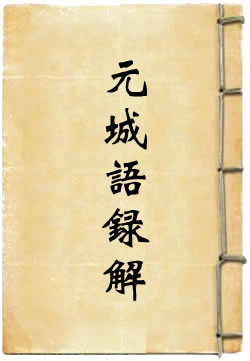 元城語録解